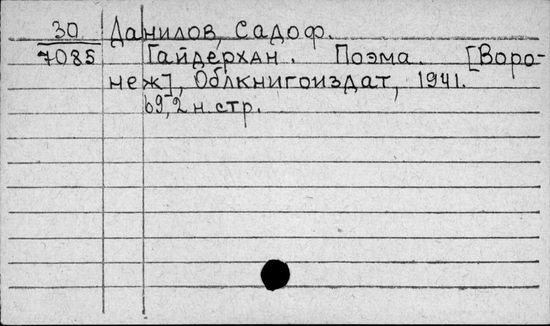 30 Данилов, Садоф.
7085 Гайдерхан. Поэма. [Воро-
неж], Облкнигоиздат, 1941.
69,2 н.стр.